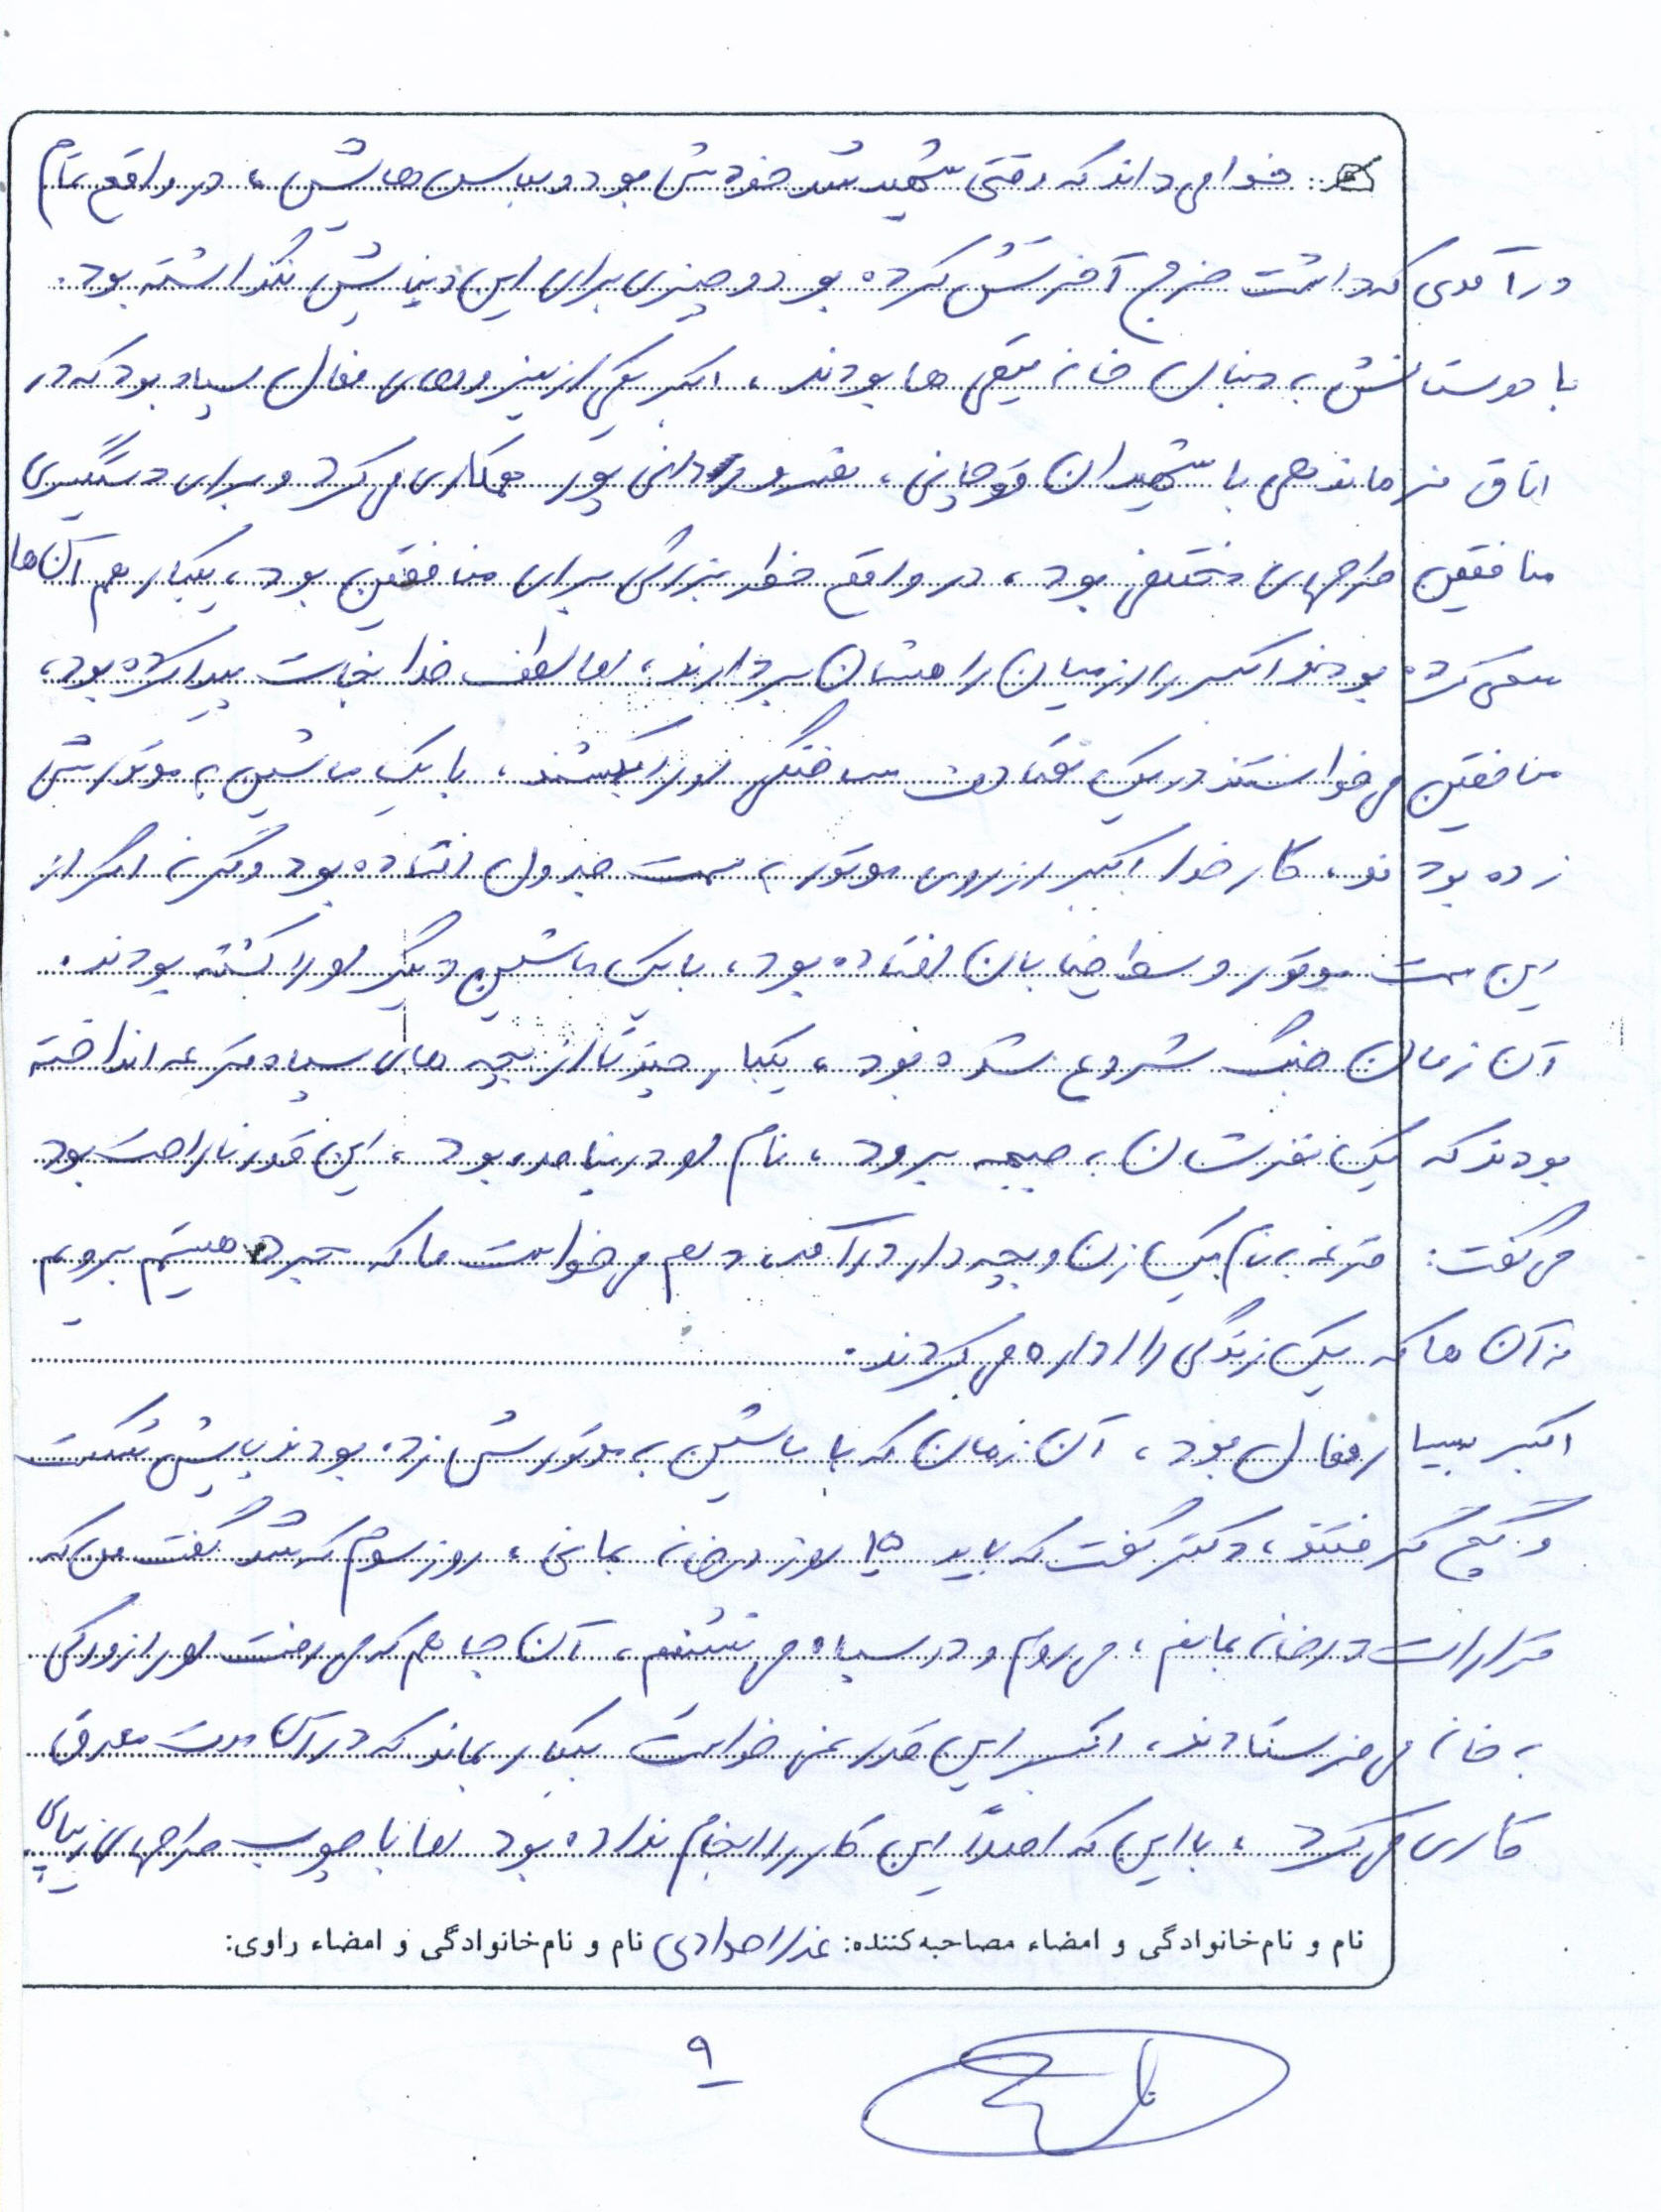 خدا می داند که وقتی شهید شد خودش بود و لباس هایش، در واقع تمام
درآمدی که داشت خرج آخرتش کرده بود و چیزی برای این دنیایش نگذاشته بود.
با دوستانش به دنبال خانه تیمی ها بودند، اکبر یکی از نیروهای فعال سپاه بود که در
اتاق فرماندهی با شهیدان قوچانی، و پور همکاری می کرد و برای دستگیری
منافقین طراحهای مختلفی بود، در واقع خطر بزرگی برای منافقین بود، یکبار هم آن ها
سعی کرده بودند اکبر را از میان راهشان بردارند، اما لطف خدا نجات پیدا کرده بود،
منافقین می خواستند در یک تصادف ساختگی او را بکشند، با یک ماشین به موتورش
زده بودند، کار خدا اکبر از روی موتور به سمت جدول افتاده بود وگرنه اگر از
این سمت موتور وسط خیابان افتاده بود، با یک ماشین دیگر او را کشته بودند.
آن زمان جنگ شروع شده بود، یکبار چند تا از بچه های سپاه قرعه انداخته
بودند که یک نفرشان به جبهه برود، نام او در نیامده بود، این قدر ناراحت بود
می گفت: قرعه به نام یک زن و بچه دار درآمد، دلم می خواست ما که مجرد هستیم برویم
نه آن ها که یک زندگی را اداره می کردند.
اکبر بسیار فعال بود، آن زمان که با ماشین به موتورش زده بودند پایش شکست
و گچ گرفتند، دکتر گفت که باید ۱۵ روز در خانه بمانی، روز سوم که شد گفت من که
قرار است در خانه بمانم، می روم و در سپاه می نشینم، آن جا هم که می رفت او را زورکی
به خانه می فرستادند، اکبر این قدر نمی خواست بیکار بماند که در آن مدت معرق
کاری می کرد، با این که اصلاً این کار را انجام نداده بود اما با چوب طراحهای زیبایی
نام و نام خانوادگی و امضاء مصاحبه کننده: عذرا نام و نام خانوادگی و امضاء راوی:
۹